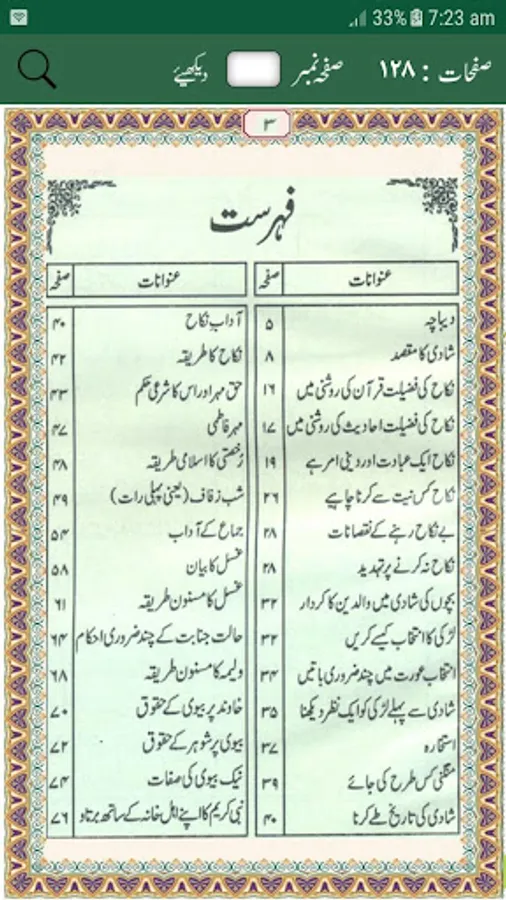 33% 7:23 am
صفحات : ۱۲۸ صفحہ نمبر دیکھیئے
۳
فہرست
عنوانات صفحہ
دیباچہ ۵
شادی کا مقصد ۸
نکاح کی فضیلت قرآن کی روشنی میں ۱۶
نکاح کی فضیلت احادیث کی روشنی میں ۱۷
نکاح ایک عبادت اور دینی امر ہے ۱۹
نکاح کس نیت سے کرنا چاہیے ۲۶
بے نکاح رہنے کے نقصانات ۲۸
نکاح نہ کرنے پر تہدید ۲۸
بچوں کی شادی میں والدین کا کردار ۳۲
لڑکی کا انتخاب کیسے کریں ۳۲
انتخاب عورت میں چند ضروری باتیں ۳۴
شادی سے پہلے لڑکی کو ایک نظر دیکھنا ۳۵
استخارہ ۳۷
منگنی کس طرح کی جائے ۳۹
شادی کی تاریخ طے کرنا ۴۰
عنوانات صفحہ
آداب نکاح ۴۰
نکاح کا طریقہ ۴۲
حق مہر اور اس کا شرعی حکم ۴۳
مہر فاطمی ۴۷
رخصتی کا اسلامی طریقہ ۴۸
شب زفاف (یعنی پہلی رات) ۴۹
جماع کے آداب ۵۴
غسل کا بیان ۵۸
غسل کا مسنون طریقہ ۶۱
حالت جنابت کے چند ضروری احکام ۶۴
ولیمہ کا مسنون طریقہ ۶۸
خاوند پر بیوی کے حقوق ۷۰
بیوی پر شوہر کے حقوق ۷۲
نیک بیوی کی صفات ۷۴
نبی کریم کا اپنے اہل خانہ کے ساتھ برتاو ۷۶